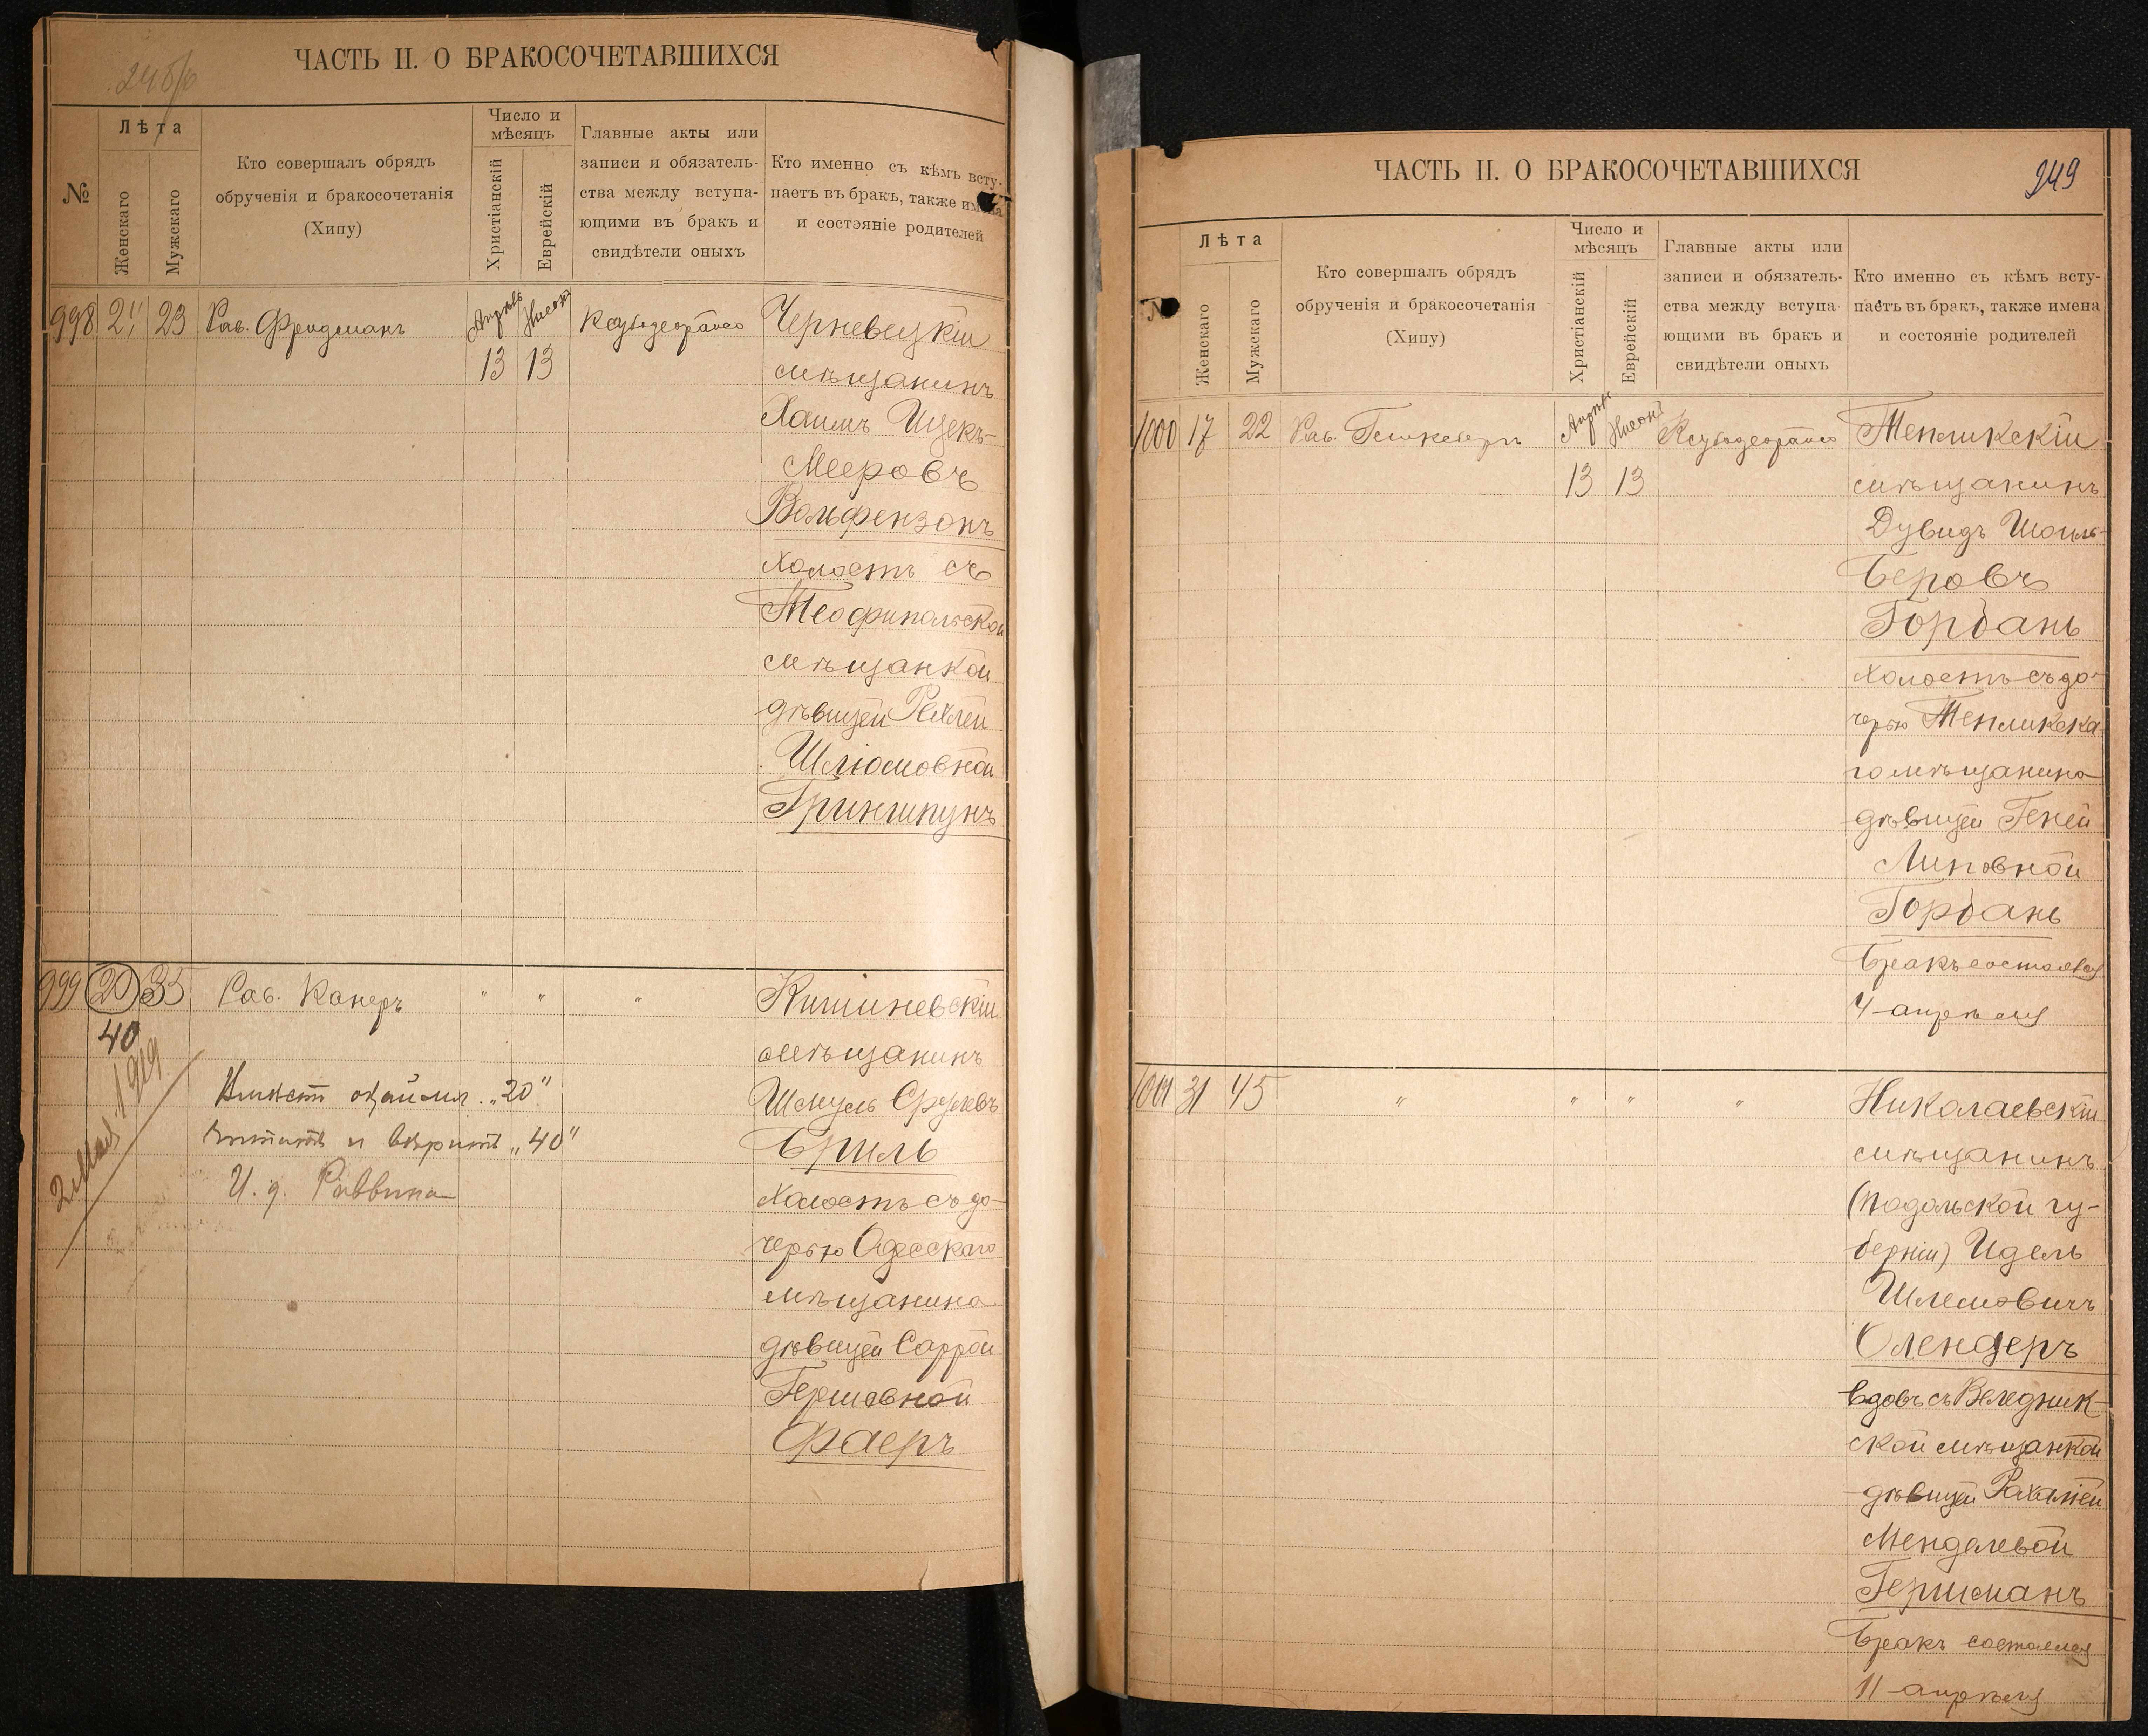 ЧАСТЬ II. О БРАКОСОЧЕТАВШИХСЯ
№
Лѣта
Женскаго
Мужскаго
Кто совершалъ обрядъ
обрученія и бракосочетанія
(Хипу)
Число и
мѣсяцъ
Христіанскій
Еврейскій
Главные акты или
записи и обязатель-
ства между вступа-
ющими въ бракъ и
свидѣтели оныхъ
Кто именно съ кѣмъ всту-
паетъ въ бракъ, также имена
и состояніе родителей
998 21 23 Рав. Фридманъ Апрѣль Нисонъ Черневецкій
13 13 мѣщанинъ
Хаимъ Ицекъ-
Мееровъ
Вольфензонъ
холостъ съ
Теофипольской
мѣщанкой
дѣвицей Рахлей
Шлюмовной
Гриншпунъ
999 20 35 Рав. Канеръ " " " Кишиневскій
40 мѣщанинъ
Вмѣсто "20" Шмуль Сруловъ
читать и вѣрить "40" Бриль
И. д. Раввина холостъ съ до-
2 Мая 1919
черью Одесскаго
мѣщанина
дѣвицей Саррой
Гершовной
Фаеръ
ЧАСТЬ II. О БРАКОСОЧЕТАВШИХСЯ
249
№
Лѣта
Женскаго
Мужскаго
Кто совершалъ обрядъ
обрученія и бракосочетанія
(Хипу)
Число и
мѣсяцъ
Христіанскій
Еврейскій
Главные акты или
записи и обязатель-
ства между вступа-
ющими въ бракъ и
свидѣтели оныхъ
Кто именно съ кѣмъ всту-
паетъ въ бракъ, также имена
и состояніе родителей
1000 17 22 Рав. Апрѣль Нисонъ Тепликскій
13 13 мѣщанинъ
Дувидъ Шоиль-
Беровъ
Горбань
холостъ съ до-
черью Тепликска-
го мѣщанина
дѣвицей Геней
Липовной
Горбань
Бракъ состоялся
4 апрѣля
1001 31 45 " " " " Николаевскій
мѣщанинъ
(Подольской гу-
берніи) Идель
Шлемовичъ
Олендеръ
вдовъ съ Веледник-
ской мѣщанкой
дѣвицей Рахилей
Менделевой
Геришманъ
Бракъ состоялся
11 апрѣля